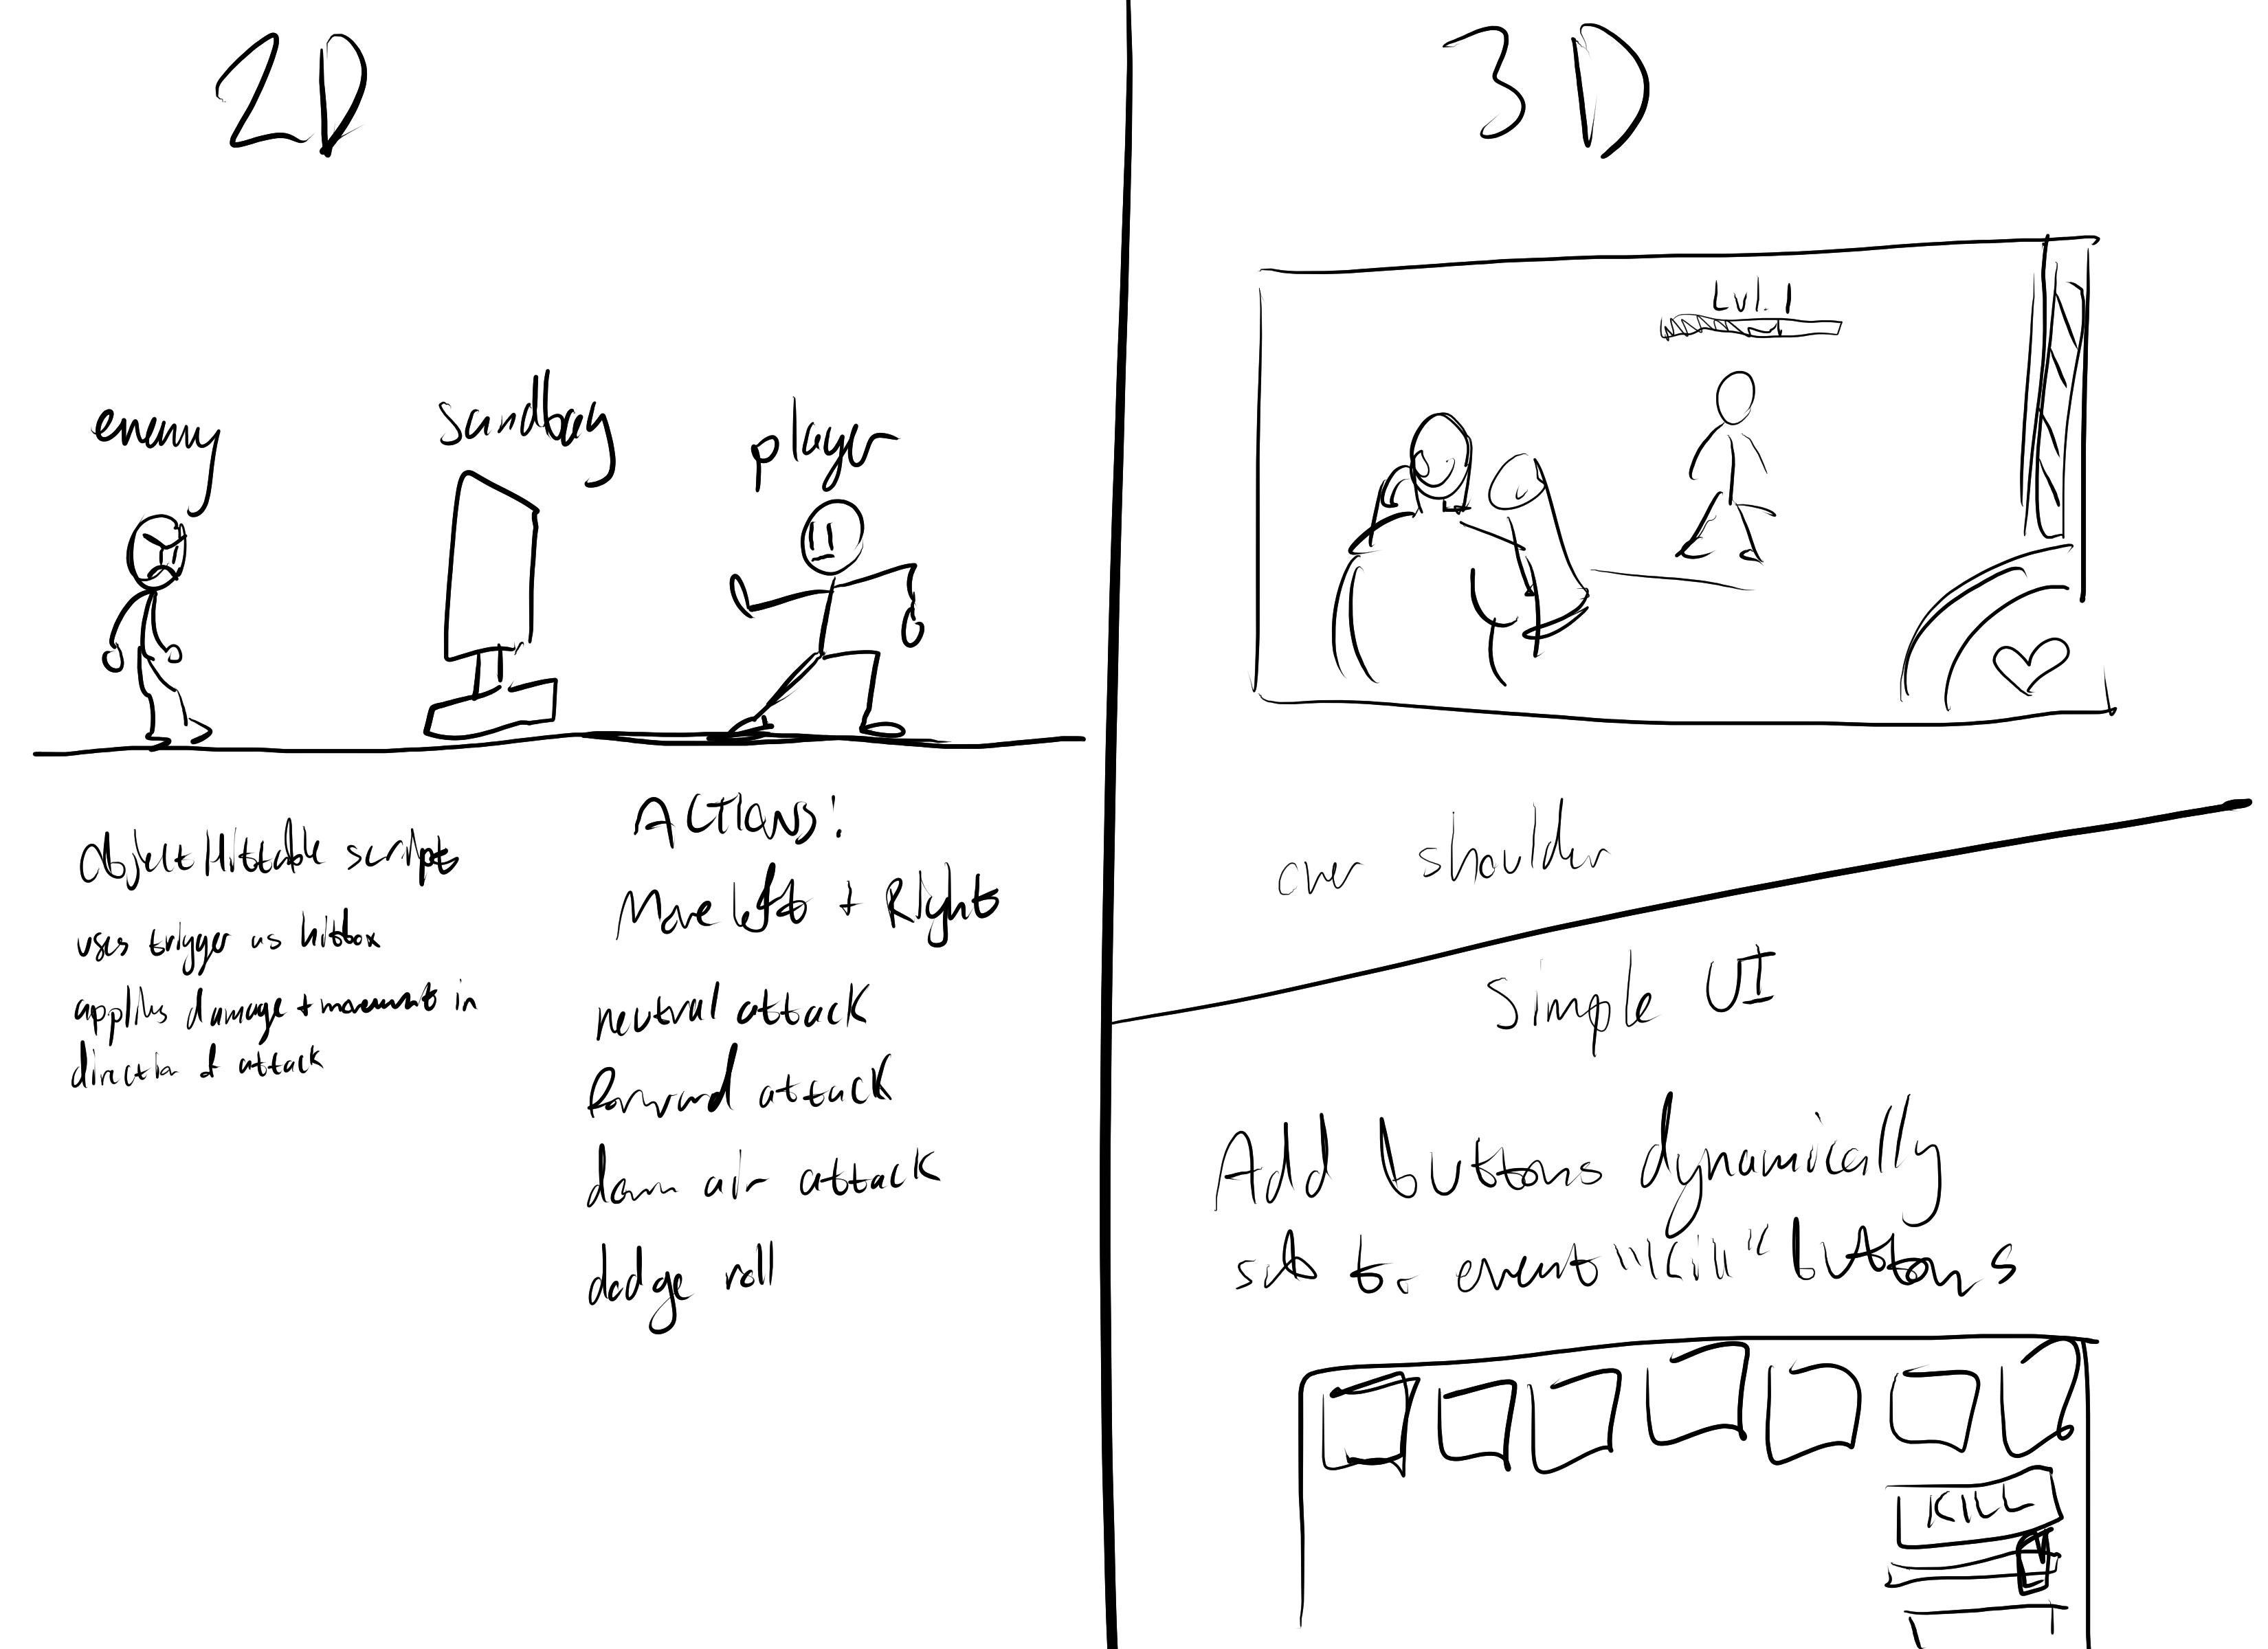 2D
enemy
sandbag
player
Object Hittable script
uses trigger as hitbox
applies damage + movement in
direction of attack
Actions:
Move left + Right
neutral attack
forward attack
down air attack
dodge roll
3D
Lvl. 1
over shoulder
Simple UI
Add buttons dynamically
sub to event "kill" buttons
KILL